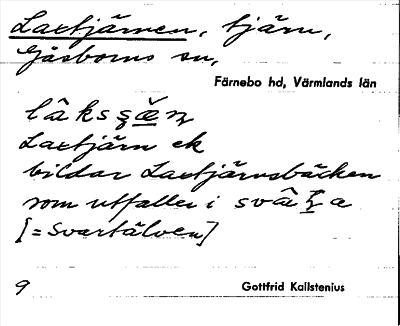 Laxtjärnen, tjärn,
Gåsborns sn,
Färnebo hd, Värmlands län
Laxtjärn ek
bildar Laxtjärnsbäcken
som utfaller i
[= Svartälven]
9
Gottfrid Kallstenius